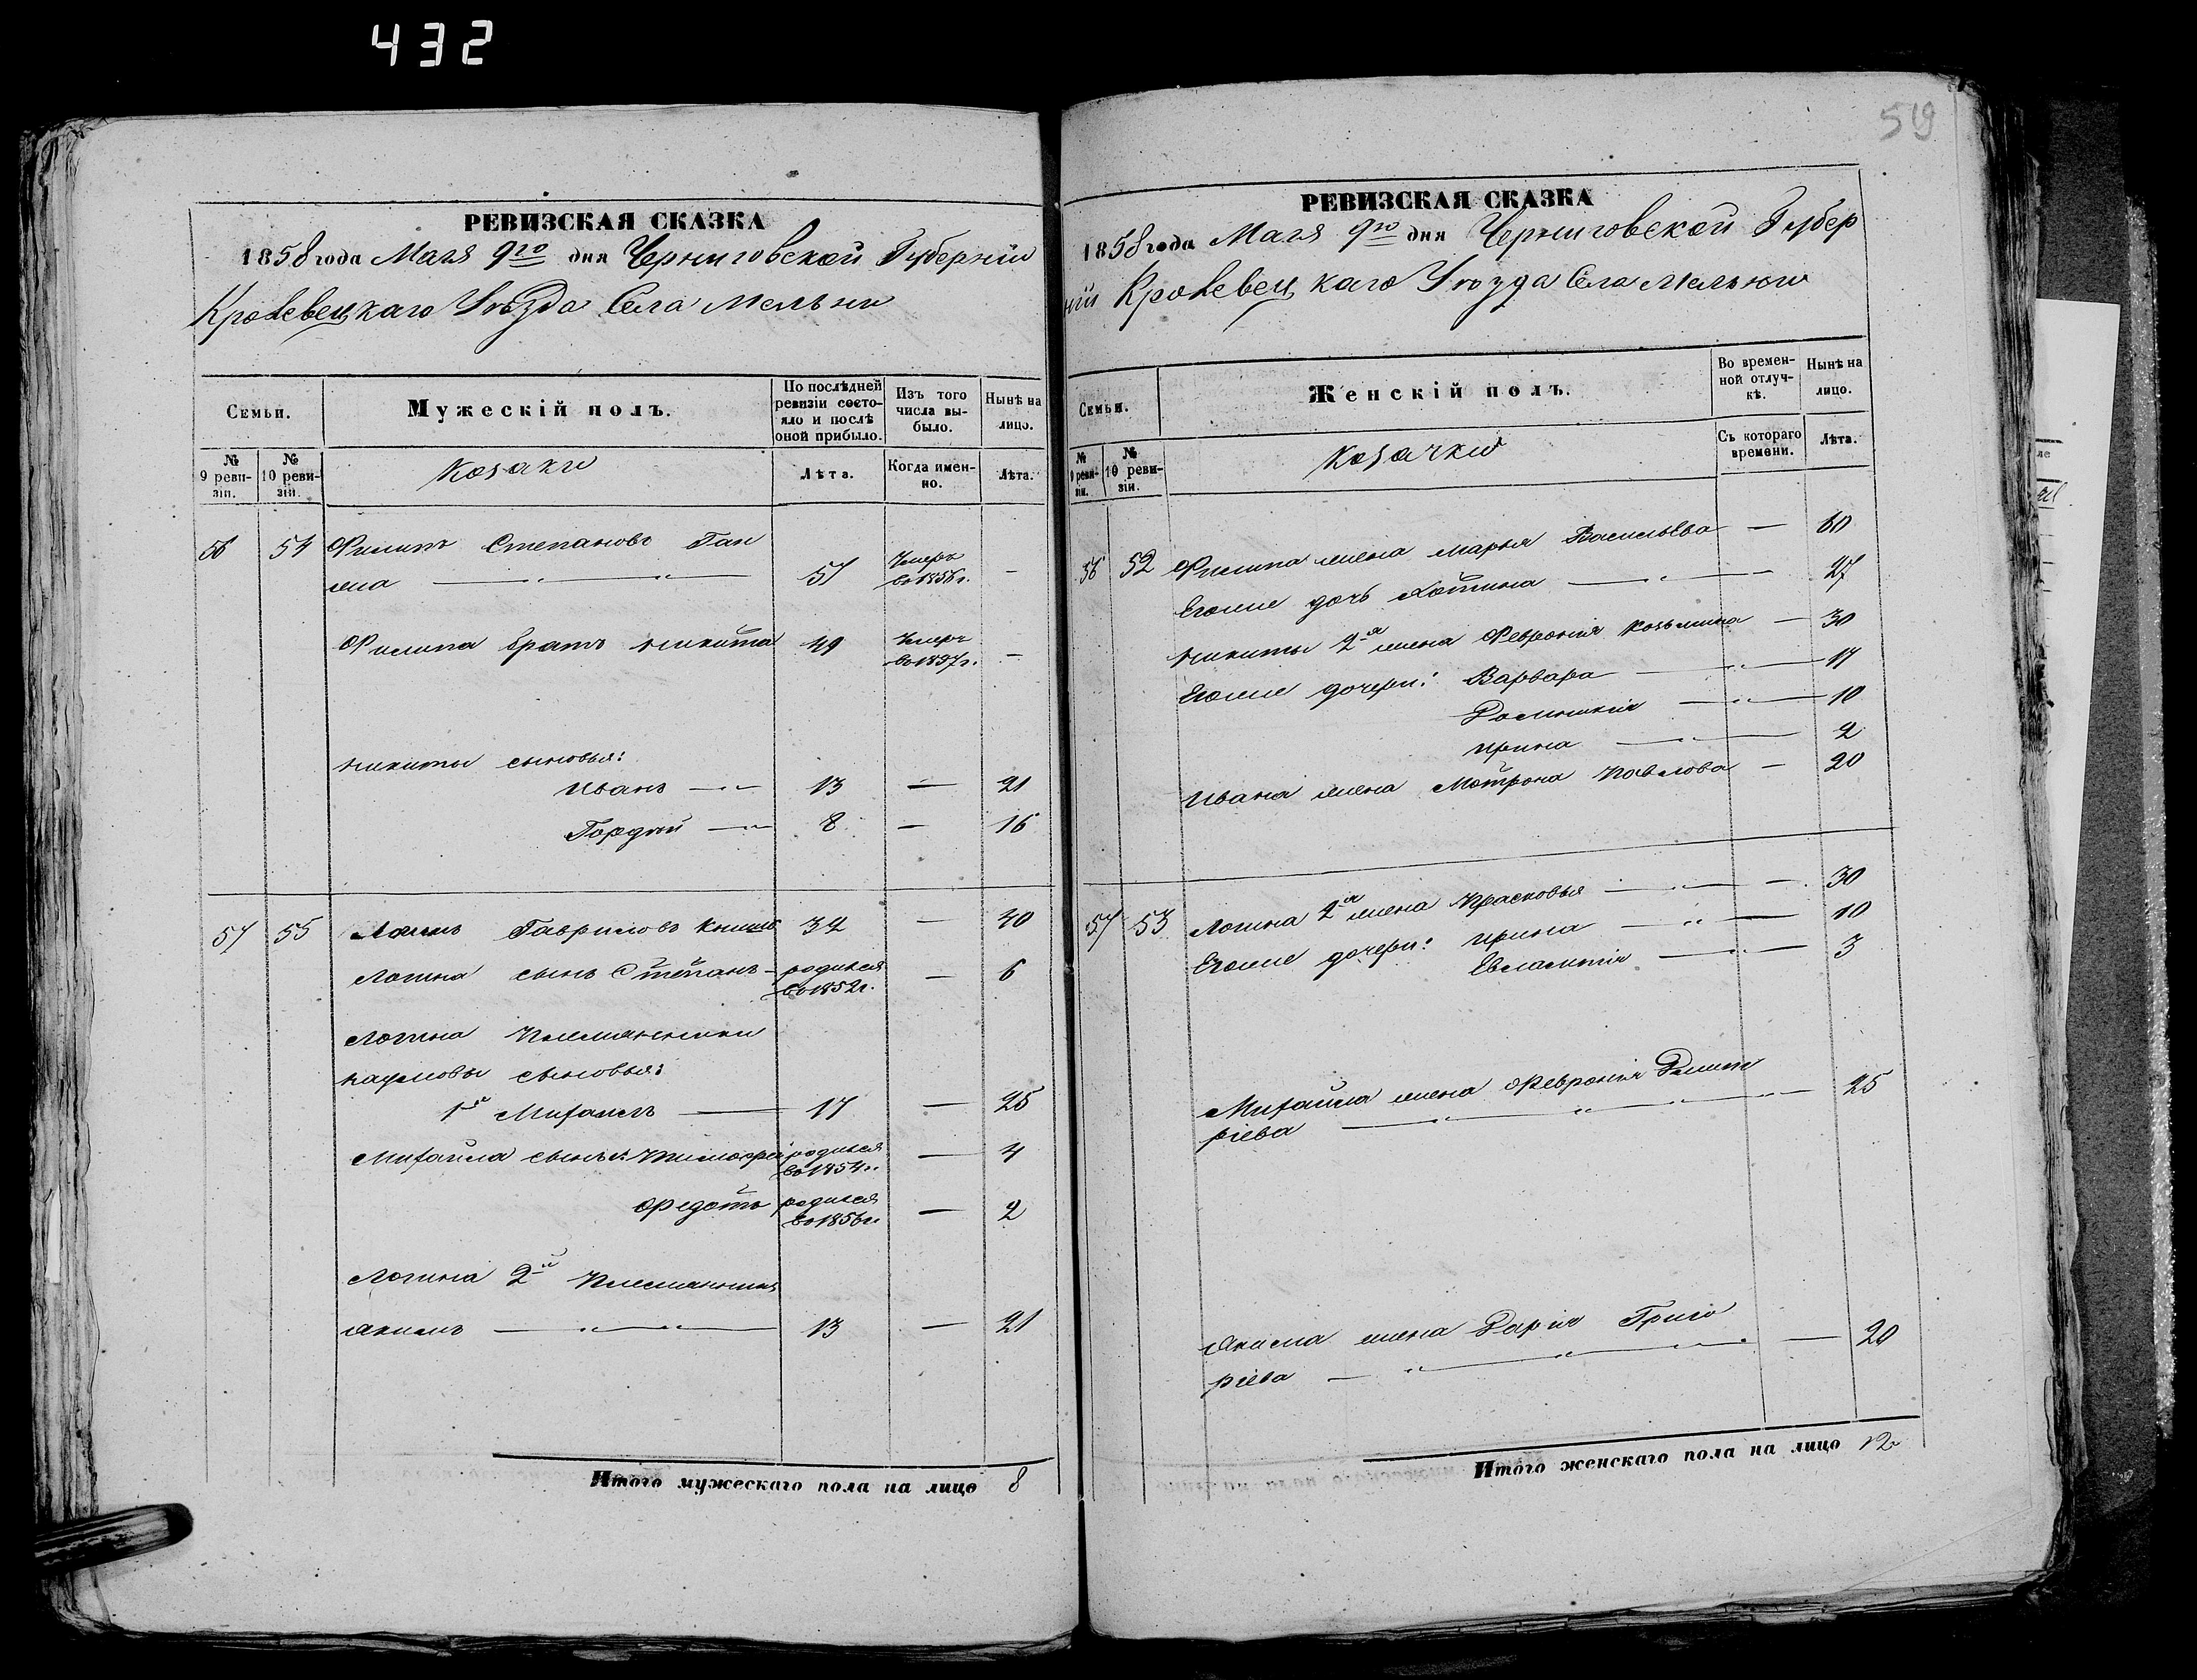 432
519
РЕВИЗСКАЯ СКАЗКА
1858 года Маия 9го дня Черниговской Губерніи
Кролевецкаго Уѣзда Села Мельни
Семьи.
Мужескій полъ.
По послѣдней ревизіи состояло и послѣ оной прибыло.
Изъ того числа выбыло.
Нынѣ на лицо.
№ 9 ревизіи.
№ 10 ревизіи.
Козаки
Лѣта.
Когда именно.
Лѣта.
56 54 Филипъ Степановъ Ган
жа 51 Умеръ во 1856 г. -
Филипа братъ Никита 49 Умеръ во 1857 г. -
Никиты сыновья:
Иванъ 13 — 21
Гордѣй 8 — 16
57 55 Логинъ Гавриловъ 32 — 40
Логина сынъ Степанъ - родился во 1852 г. — 6
Логина Племянники
Наумовы сыновья:
1й Михаилъ 17 — 25
Михайла сынъ: Тимофей родился во 1854 г. — 4
Федотъ родился во 1856 г. — 2
Логина 2й Племянникъ
Якимъ 13 — 21
Итого мужескаго пола на лицо 8
РЕВИЗСКАЯ СКАЗКА
1858 года Маия 9го дня Черниговской Губер
ніи Кролевецкаго Уѣзда Села Мельни
Семьи.
Женскій полъ.
Во временной отлучкѣ.
Нынѣ на лицо.
№ 9 ревизіи.
№ 10 ревизіи.
Козачки
Съ котораго времени.
Лѣта.
56 52 Филипа жена Марья Васильева — 60
Егоже дочь 27
Никиты 2я жена Февронія Козьмина — 30
Егоже дочери: Варвара 17
Домникія 10
Ирина 2
Ивана жена Мотрона Павлова — 20
57 53 Логина 2я жена Прасковья — 30
Егоже дочери: Ирина 10
Евлампія 3
Михайла жена Февронія Дмит
ріева 25
Якима жена Дарія Григо
ріева — 20
Итого женскаго пола на лицо 12